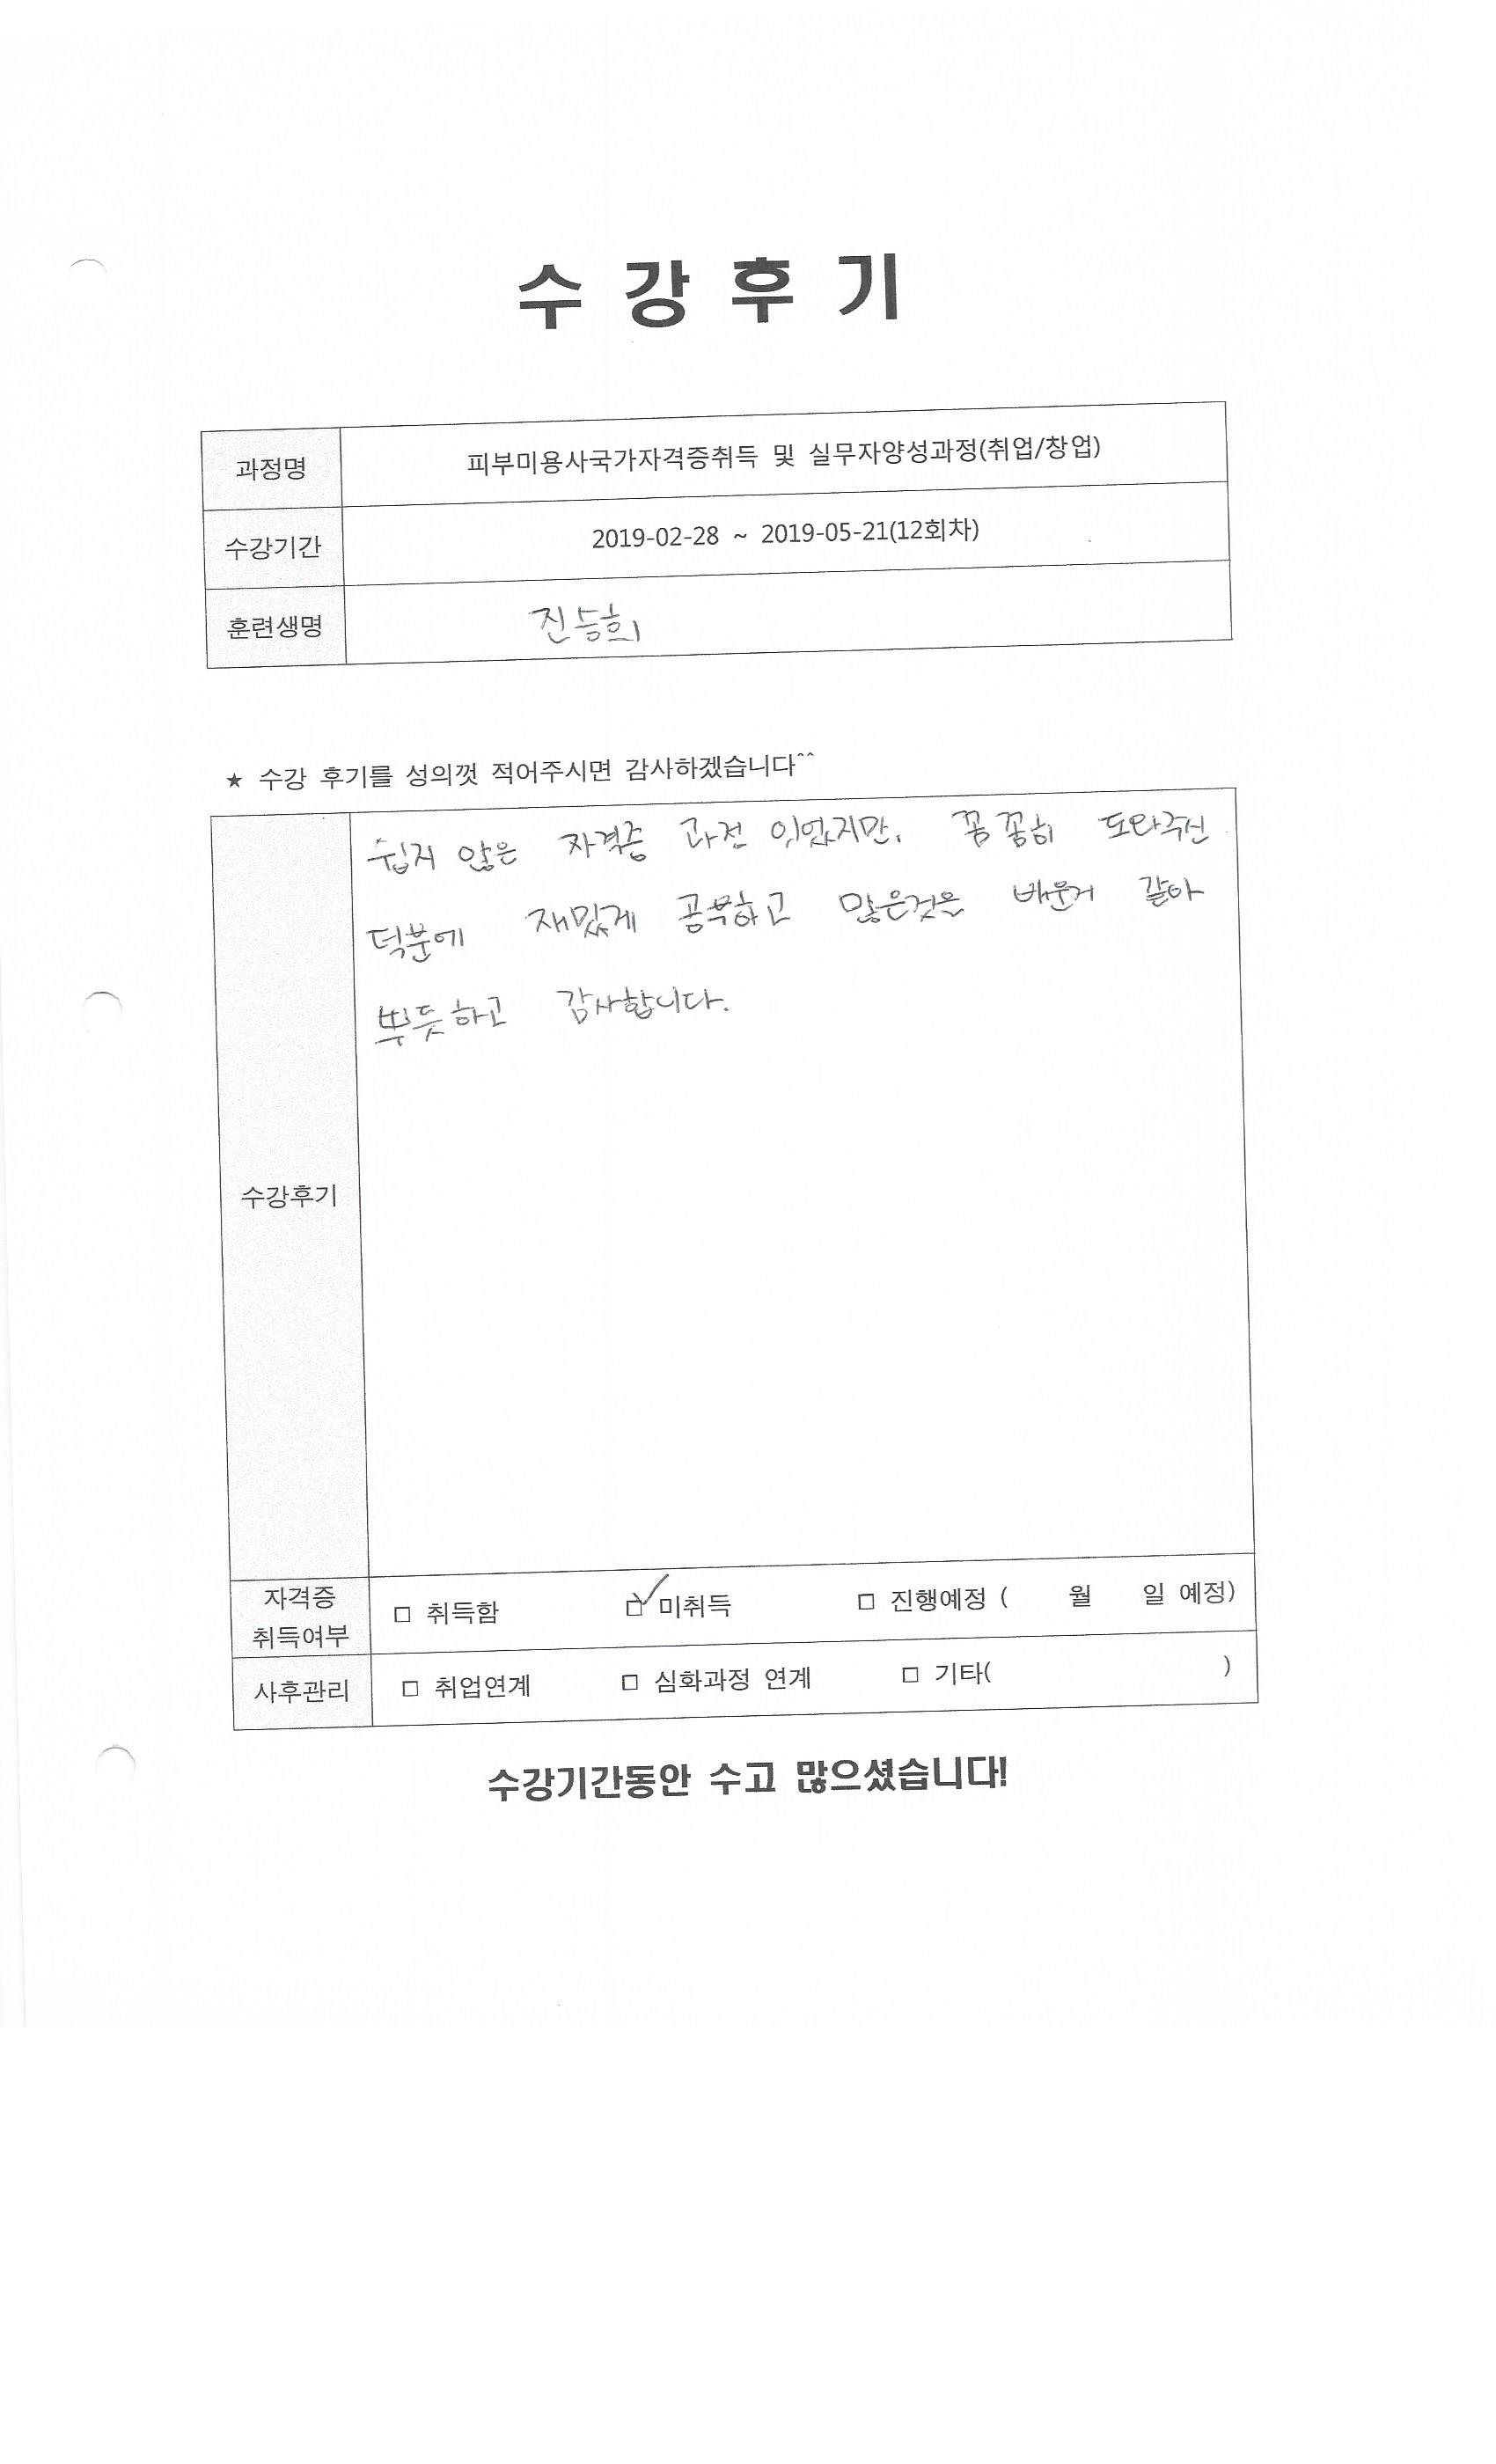 수 강 후 기
과정명 피부미용사국가자격증취득 및 실무자양성과정(취업/창업)
수강기간 2019-02-28 ~ 2019-05-21(12회차)
훈련생명 진승희
★ 수강 후기를 성의껏 적어주시면 감사하겠습니다^^
쉽지 않은 자격증 과정 이었지만, 꼼꼼히 도와주신
덕분에 재밌게 공부하고 많은것을 배운거 같아
뿌듯하고 감사합니다.
수강후기
자격증
취득여부
□ 취득함 □ 미취득 □ 진행예정 ( 월 일 예정)
사후관리 □ 취업연계 □ 심화과정 연계 □ 기타( )
수강기간동안 수고 많으셨습니다!